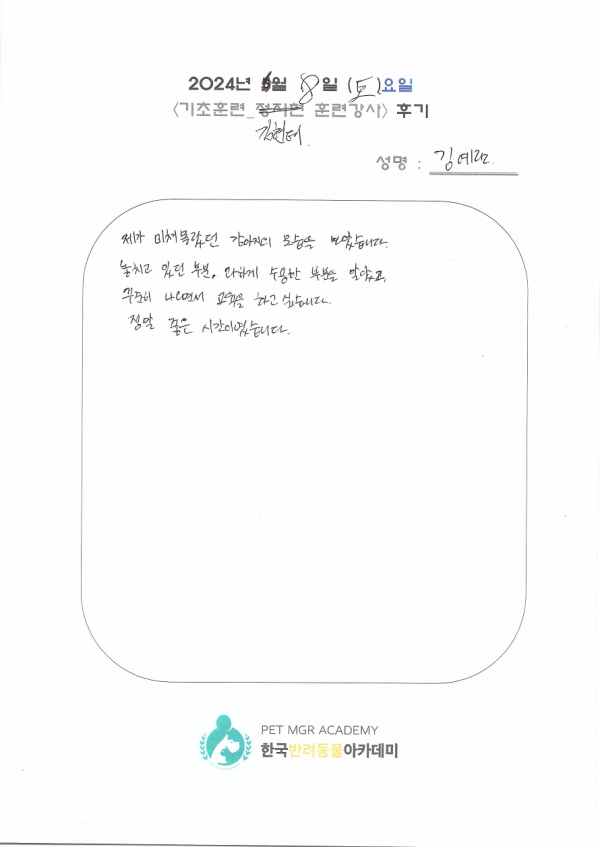 2024년 6월 8일 (토)요일
<기초훈련_정지현 훈련강사> 후기
김현태.
성명 : 김예란
제가 미처몰랐던 강아지의 모습을 보았습니다.
놓치고 있던 부분, 과하게 수용한 부분을 알았고,
꾸준히 나오면서 교육을 하고 싶습니다.
정말 좋은 시간이었습니다.
PET MGR ACADEMY
한국반려동물아카데미